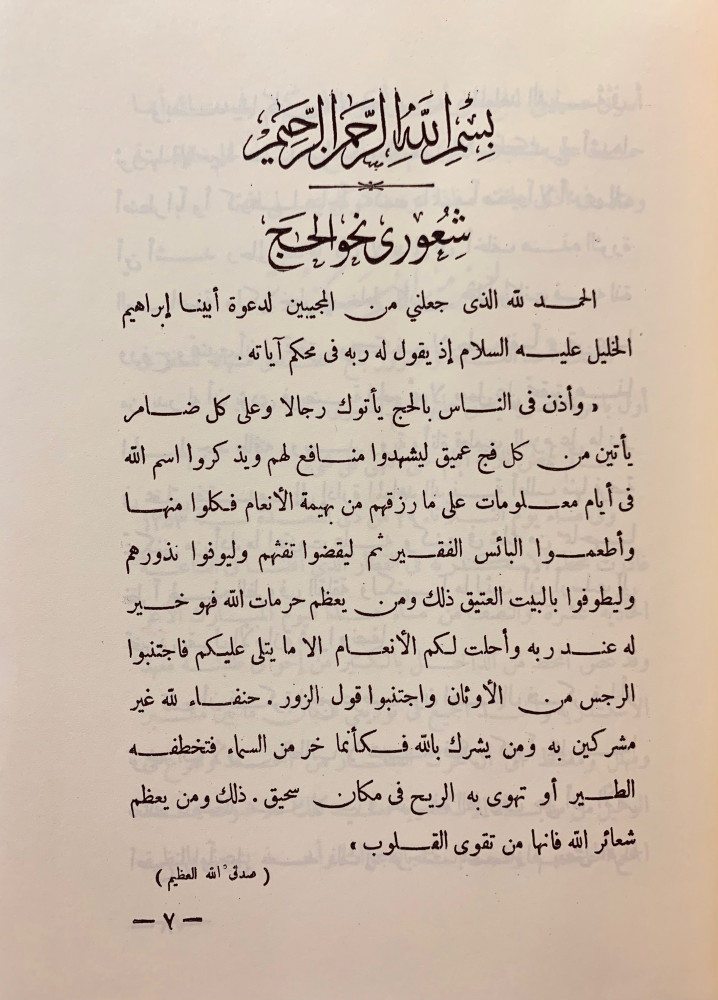 بِسْمِ اللهِ الرَّحْمَنِ الرَّحِيمِ
شُعُورى نحو الحَج
الحمد لله الذى جعلني من المجيبين لدعوة أبينا إبراهيم
الخليل عليه السلام إذ يقول له ربه فى محكم آياته .
« وأذن فى الناس بالحج يأتوك رجالا وعلى كل ضامر
يأتين من كل فج عميق ليشهدوا منافع لهم ويذكروا اسم الله
فى أيام معلومات على ما رزقهم من بهيمة الأنعام فكلوا منها
وأطعموا البائس الفقير ثم ليقضوا تفثهم وليوفوا نذورهم
وليطوفوا بالبيت العتيق ذلك ومن يعظم حرمات الله فهو خير
له عند ربه وأحلت لكم الأنعام الا ما يتلى عليكم فاجتنبوا
الرجس من الأوثان واجتنبوا قول الزور . حنفاء لله غير
مشركين به ومن يشرك بالله فكأنما خر من السماء فتخطفه
الطير أو تهوى به الريح فى مكان سحيق . ذلك ومن يعظم
شعائر الله فانها من تقوى القلوب »
( صدق الله العظيم )
— ٧ —